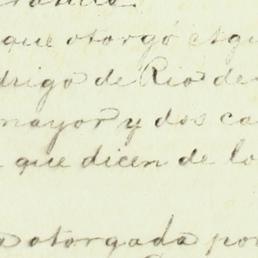 que otorgó
drigo de Rio de
mayor y dos ca
que dicen de lo
otorgada por